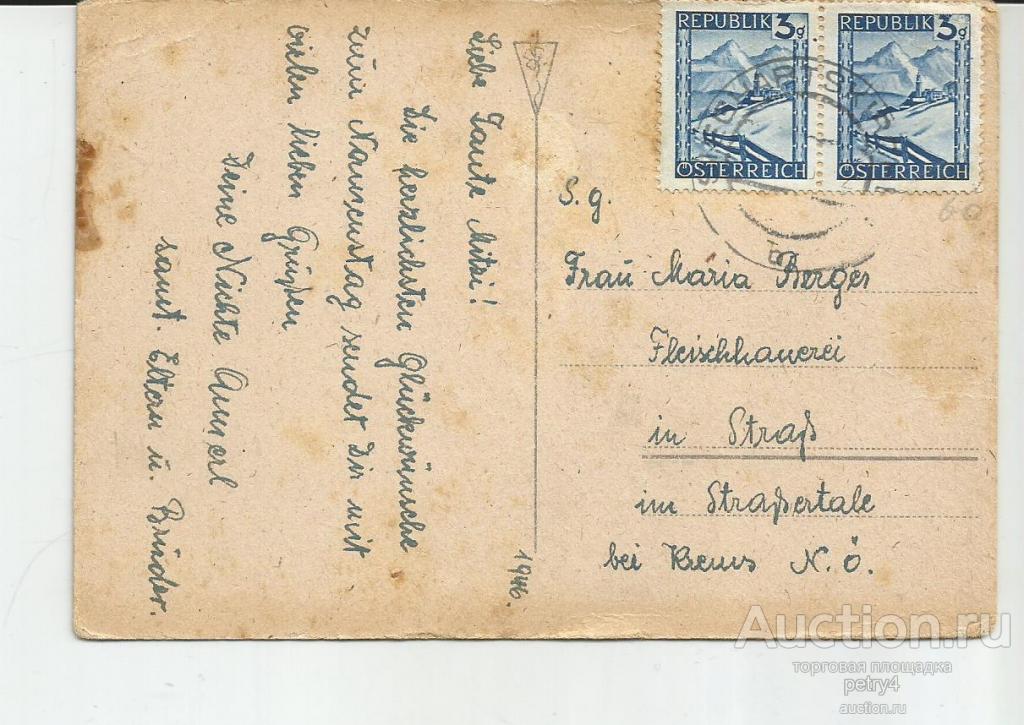 REPUBLIK 3g
ÖSTERREICH
REPUBLIK 3g
ÖSTERREICH
60
b
Liebe Tante Mitzi!
Die herzlichsten Glückwünsche
zum Namenstag sendet Dir mit
vielen lieben Grüßen
Deine Nichte Annerl
samt. Eltern u. Brüder.
1946.
S. g.
Frau Maria Berger
Fleischhauerei
in Straß
im Straßertale
bei Krems N. Ö.
Auction.ru
торговая площадка
petry4
auction.ru